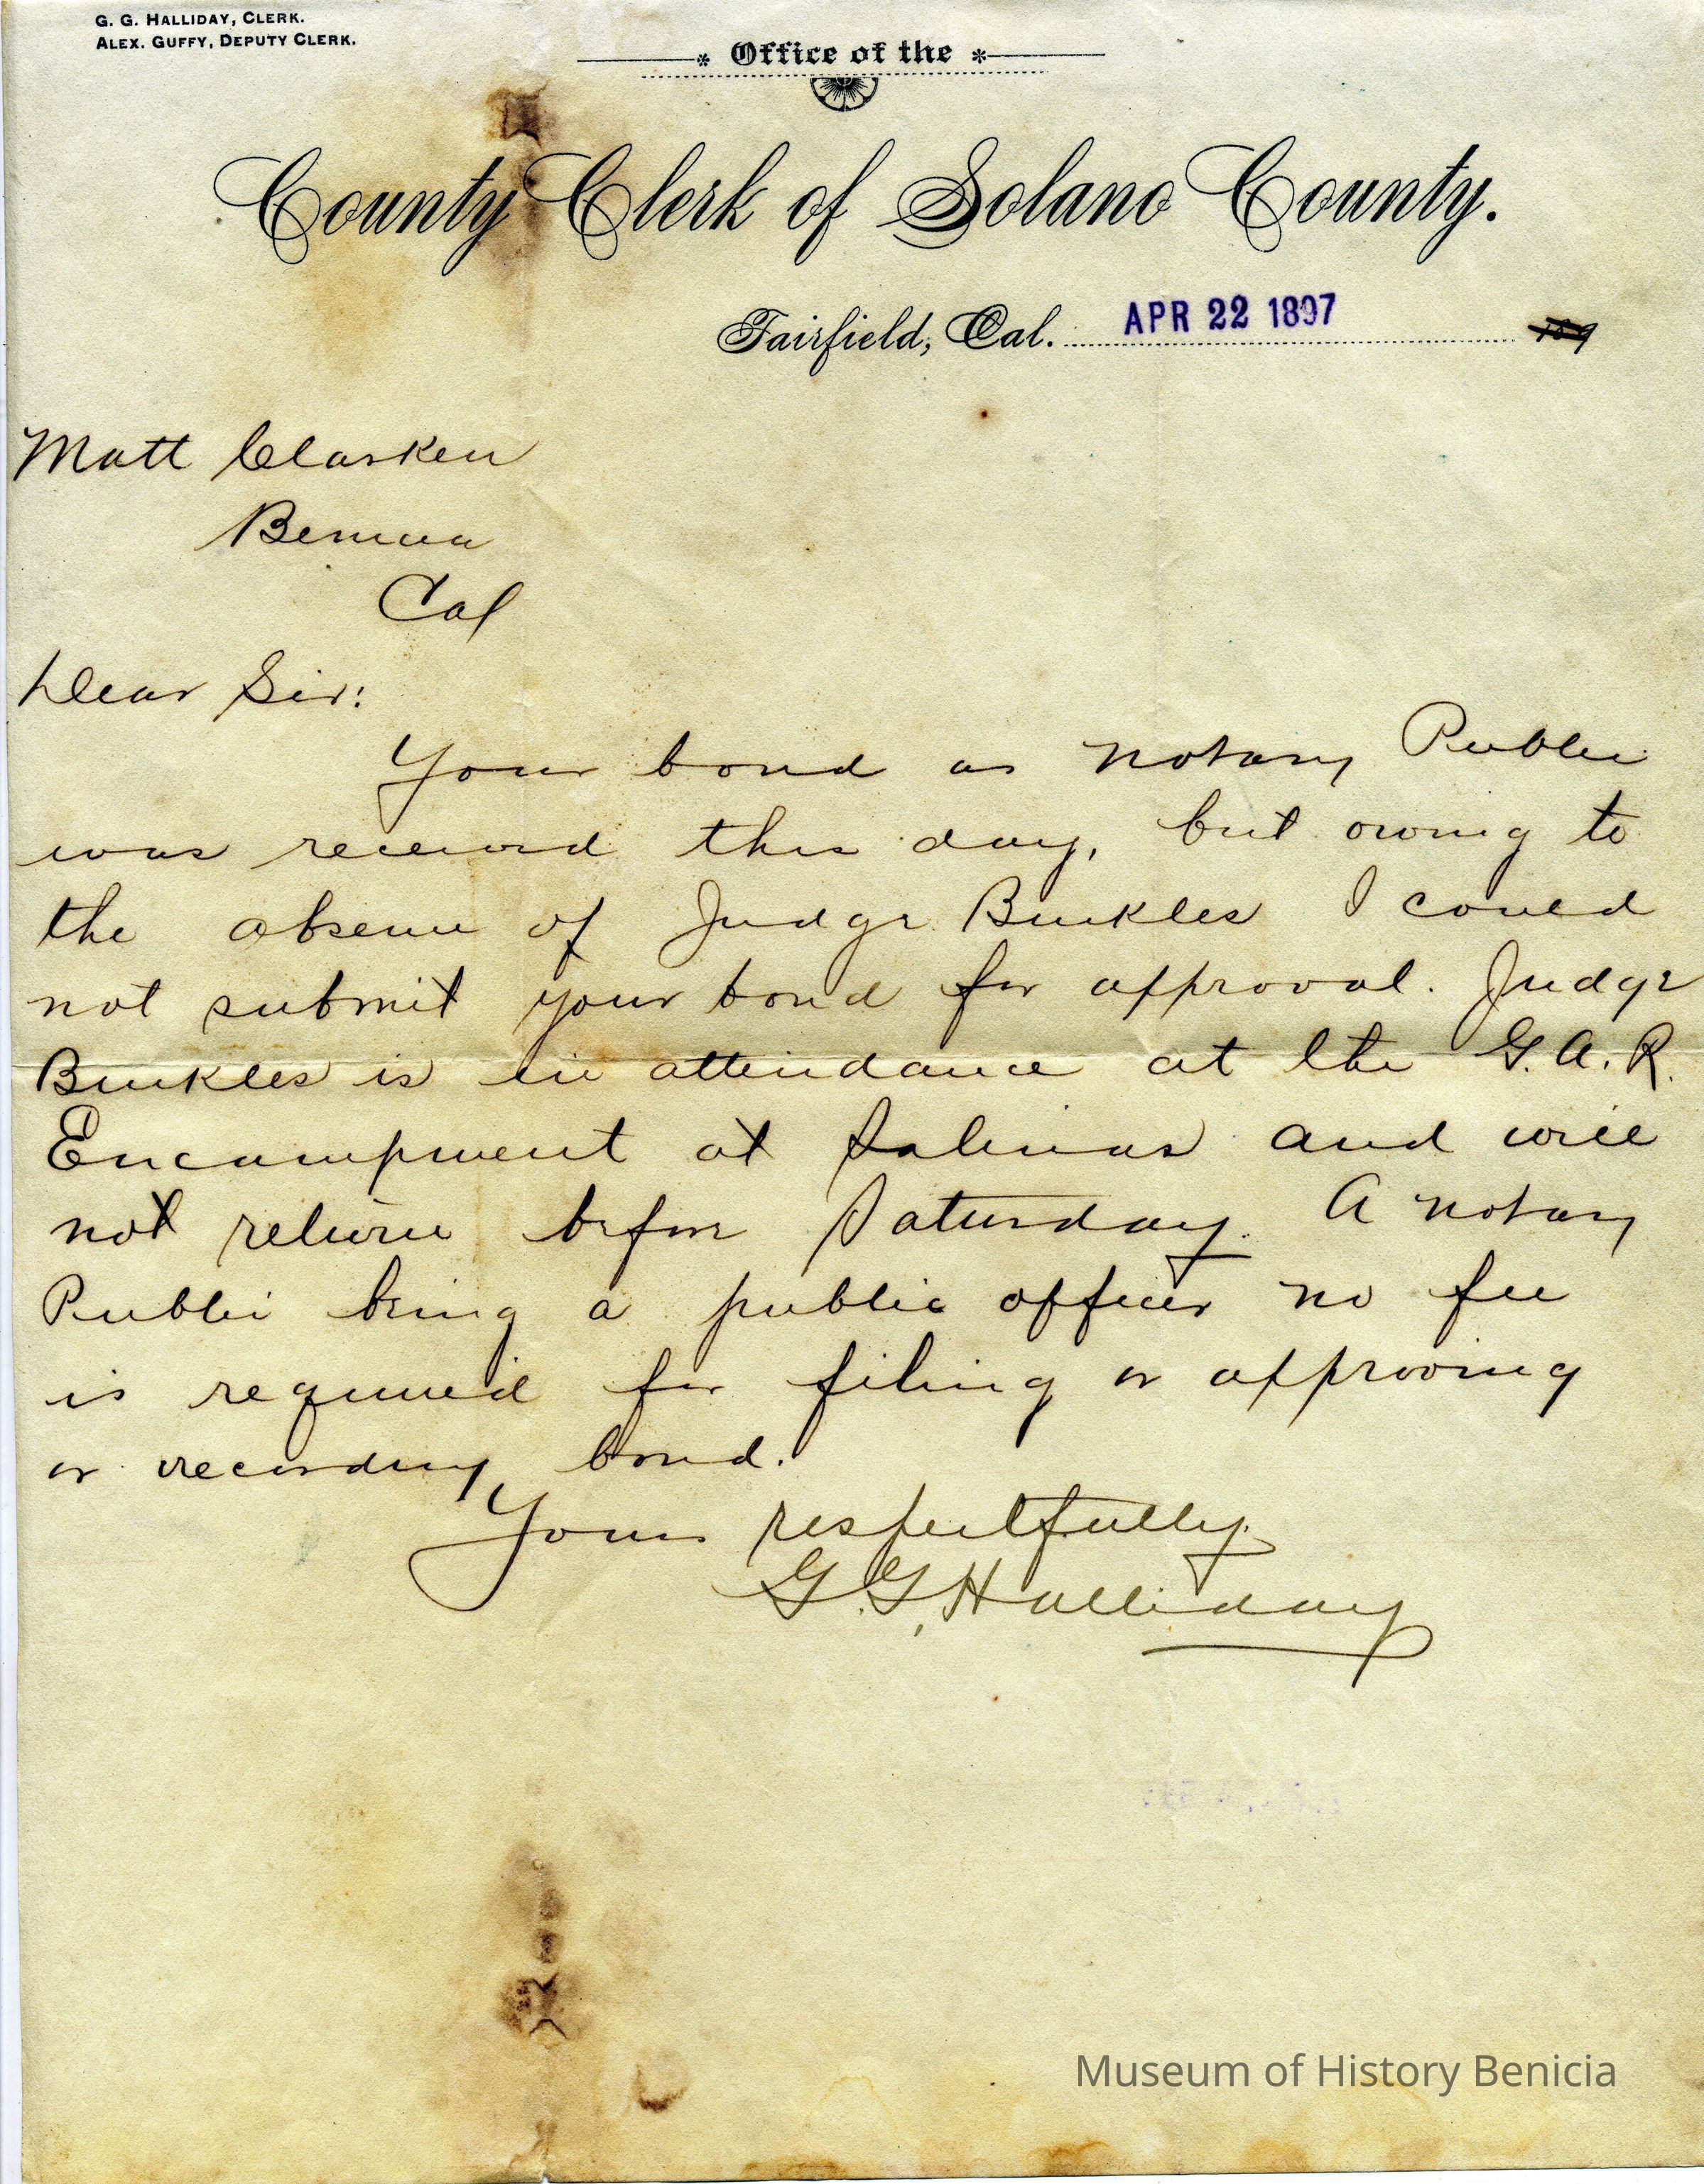 G. G. HALLIDAY, CLERK.
ALEX. GUFFY, DEPUTY CLERK.
* Office of the *
County Clerk of Solano County.
Fairfield, Cal. APR 22 1897 189
Matt Clarken
Benicia
Cal
Dear Sir:
Your bond as Notary Public
was received this day, but owing to
the absence of Judge Buckles I could
not submit your bond for approval. Judge
Buckles is in attendance at the G. A. R.
Encampment at Salinas and will
not return before Saturday. A Notary
Public being a public officer no fee
is required for filing or approving
or recording bond.
Yours respectfully
G. G. Halliday
Museum of History Benicia